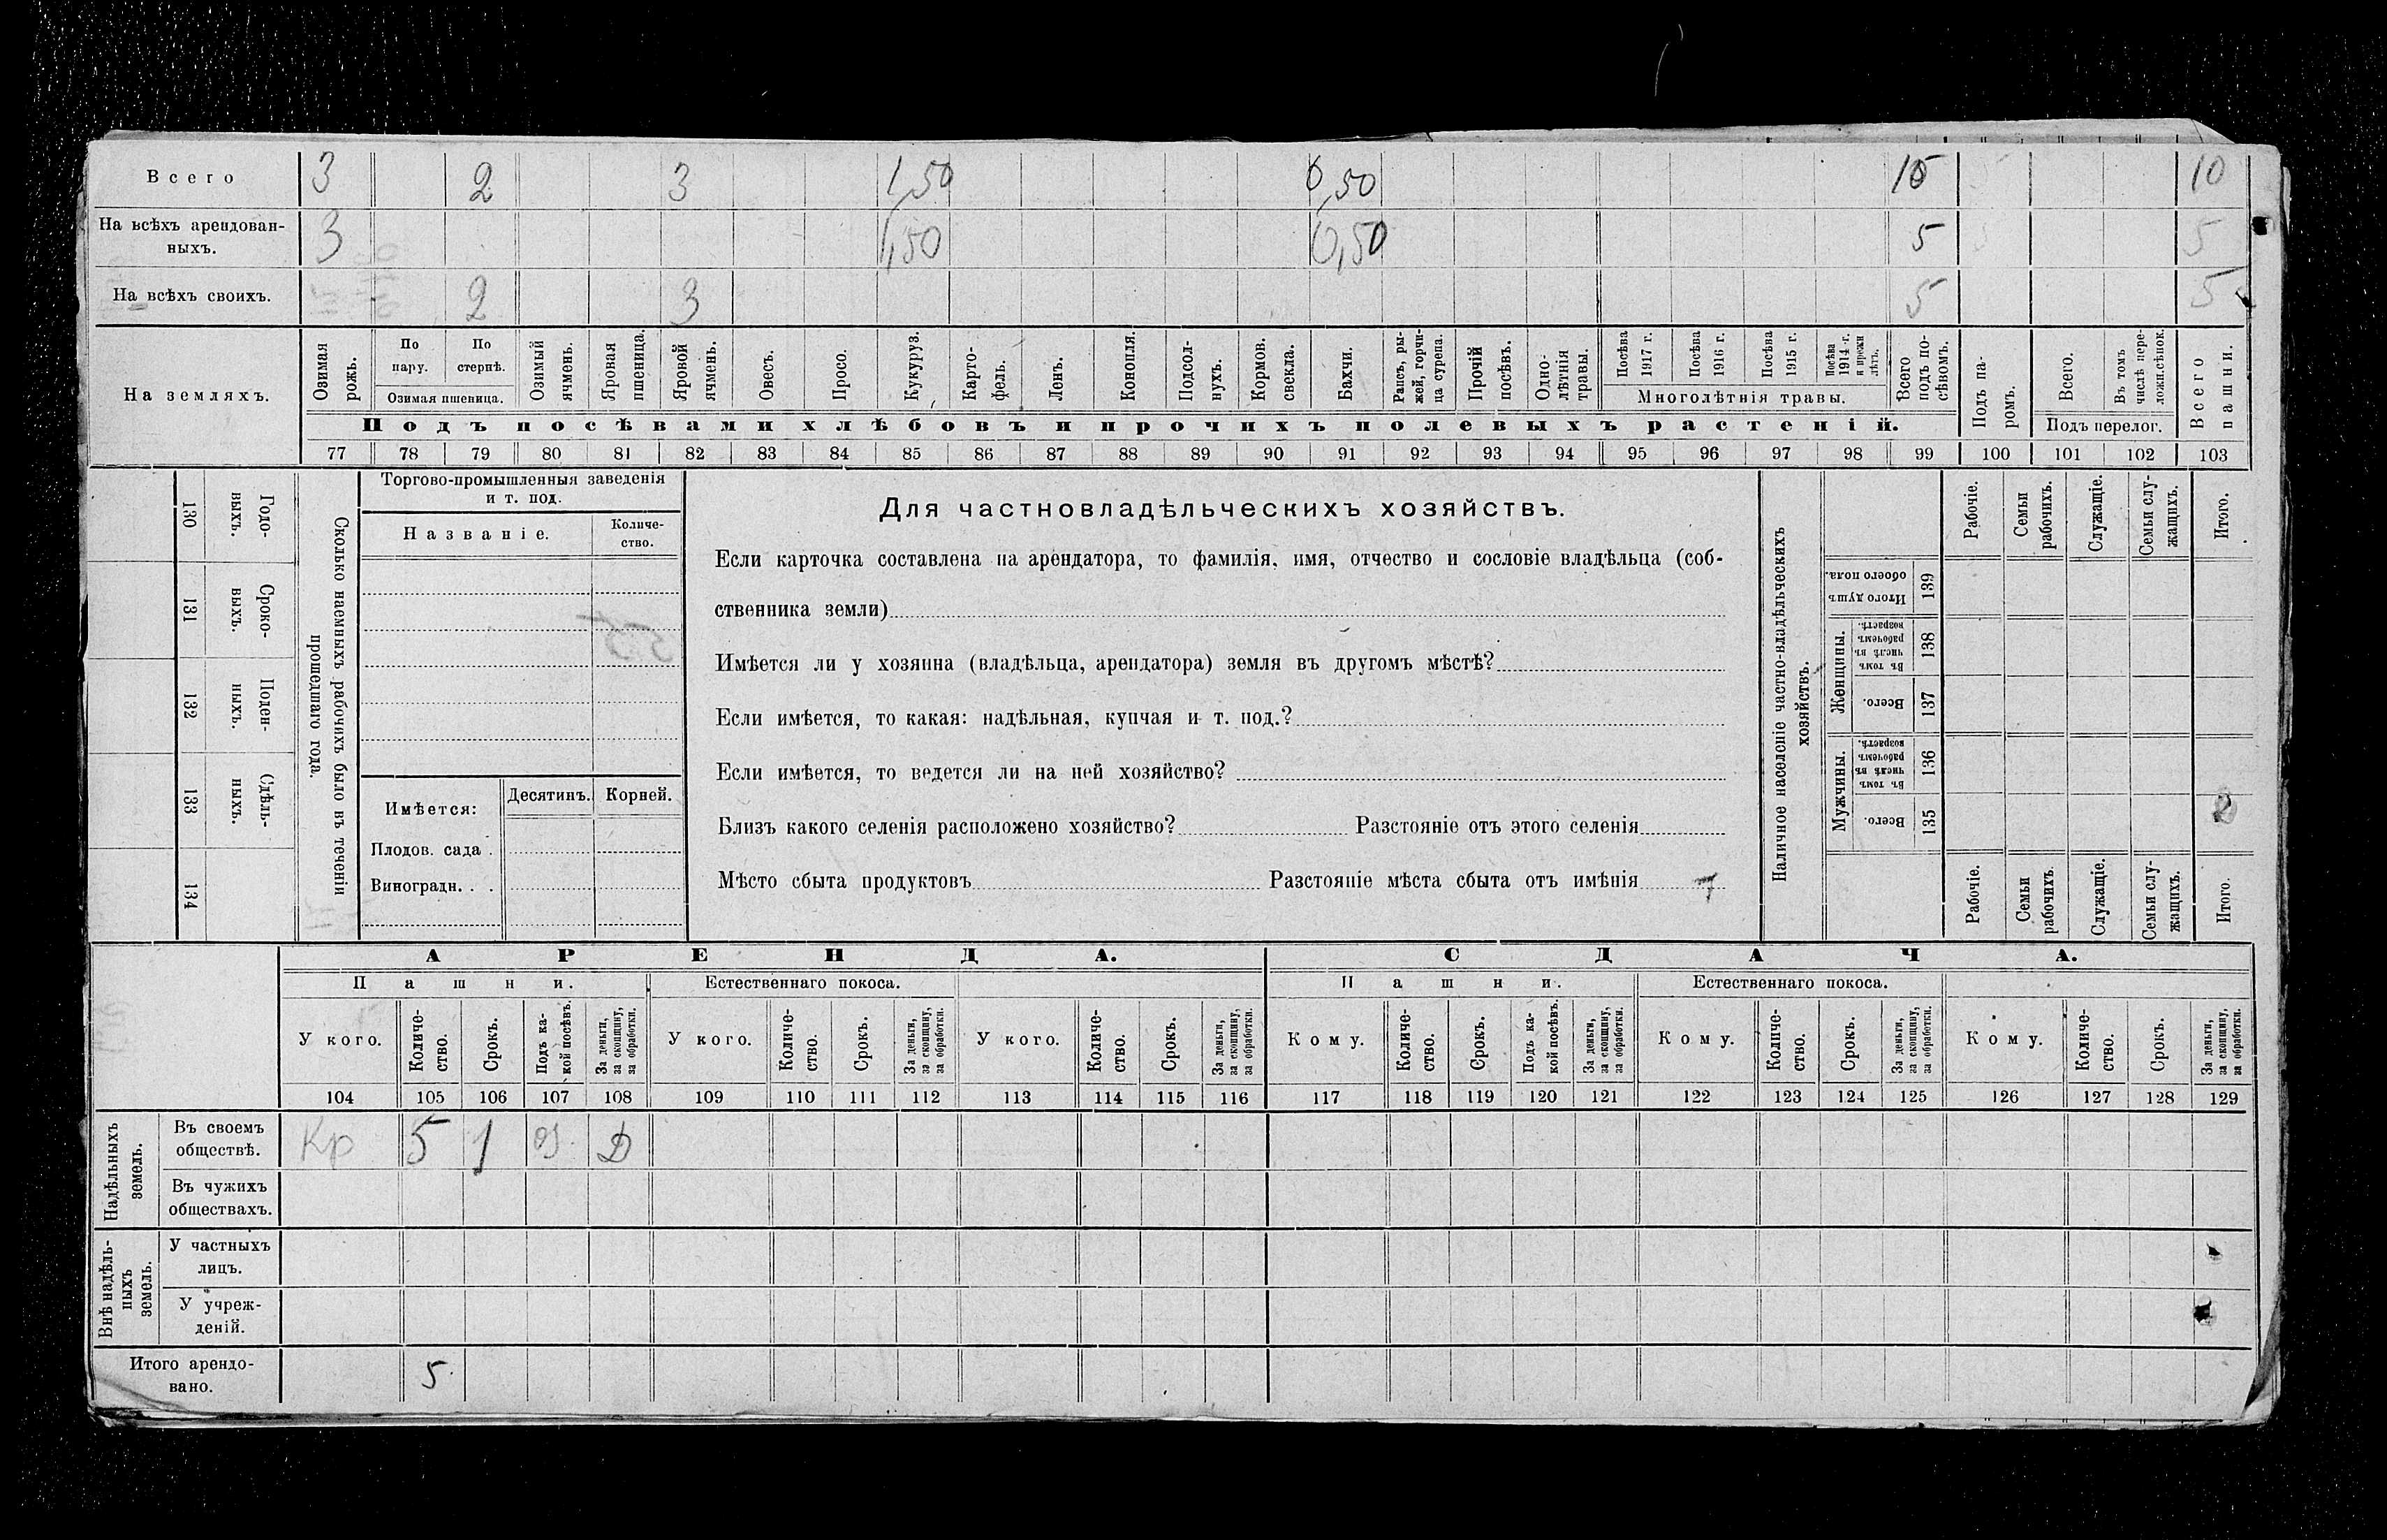 Всего 3 2 3 1,50 0,50 10 10
На всѣхъ арендован-
ныхъ. 3 1,50 0,50 5 5
На всѣхъ своихъ. 2 3 5 5
На земляхъ.
Озимая рожь.
По пару.
По стернѣ.
Озимая пшеница.
Озимый ячмень.
Яровая пшеница.
Яровой ячмень.
Овесъ.
Просо.
Кукуруз.
Карто-
фель.
Ленъ.
Конопля.
Подсол-
нухъ.
Кормов. свекла.
Бахчи.
Рапсъ, ры-
жей, горчи-
ца сурепа.
Прочій посѣвъ.
Одно-
лѣтнія травы.
Посѣва 1917 г.
Посѣва 1916 г.
Посѣва 1915 г.
Посѣва 1914 г. и прежн лѣтъ.
Многолѣтнія травы.
Всего подъ по-
сѣвомъ.
Подъ па-
ромъ.
Всего.
Въ томъ числѣ пере-
ложн.сѣнок.
Подъ перелог.
Всего пашни.
Подъ посѣвами хлѣбовъ и прочихъ полевыхъ растеній.
77 78 79 80 81 82 83 84 85 86 87 88 89 90 91 92 93 94 95 96 97 98 99 100 101 102 103
Сколько наемныхъ рабочихъ было въ теченіи
прошедшаго года.
Годо-
выхъ.
130
Сроко-
выхъ.
131
Поден-
ныхъ.
132
Сдѣль-
ныхъ.
133
134
Торгово-промышленныя заведенія
и т. под.
Названіе.
Количе-
ство.
Имѣется: Десятинъ. Корней.
Плодов. сада .
Виноградн. . .
Для частновладѣльческихъ хозяйствъ.
Если карточка составлена на арендатора, то фамилія, имя, отчество и сословіе владѣльца (соб-
ственника земли)
Имѣется ли у хозяина (владѣльца, арендатора) земля въ другомъ мѣстѣ?
Если имѣется, то какая: надѣльная, купчая и т. под.?
Если имѣется, то ведется ли на ней хозяйство?
Близъ какого селенія расположено хозяйство? Разстояніе отъ этого селенія
Мѣсто сбыта продуктовъ Разстояніе мѣста сбыта отъ имѣнія
Наличное населеніе частно-владѣльческихъ
хозяйствъ.
Рабочіе.
Семьи рабочихъ.
Служащіе.
Семьи слу-
жащихъ.
Итого.
Итого душъ обоего пола.
139
Женщины.
Въ томъ числѣ въ рабочемъ возрастѣ.
138
Всего.
137
Мужчины.
Въ томъ числѣ въ рабочемъ возрастѣ.
136
Всего.
135
Рабочіе.
Семьи рабочихъ.
Служащіе.
Семьи слу-
жащихъ.
Итого.
АРЕНДА. СДАЧА.
Пашни. Естественнаго покоса. Пашни. Естественнаго покоса.
У кого.
Количе-
ство.
Срокъ.
Подъ ка-
кой посѣвъ.
За деньги,
за скопщину,
за обработки.
У кого.
Количе-
ство.
Срокъ.
За деньги,
за скопщину,
за обработки.
У кого.
Количе-
ство.
Срокъ.
За деньги,
за скопщину,
за обработки.
Кому.
Количе-
ство.
Срокъ.
Подъ ка-
кой посѣвъ.
За деньги,
за скопщину,
за обработки.
Кому.
Количе-
ство.
Срокъ.
За деньги,
за скопщину,
за обработки.
Кому.
Количе-
ство.
Срокъ.
За деньги,
за скопщину,
за обработки.
104 105 106 107 108 109 110 111 112 113 114 115 116 117 118 119 120 121 122 123 124 125 126 127 128 129
Надѣльныхъ
земель.
Въ своемъ
обществѣ. Кр 5 1 оз. Д
Въ чужихъ
обществахъ.
Внѣ надѣль-
ныхъ
земель.
У частныхъ
лицъ.
У учреж-
деній.
Итого арендо-
вано. 5.